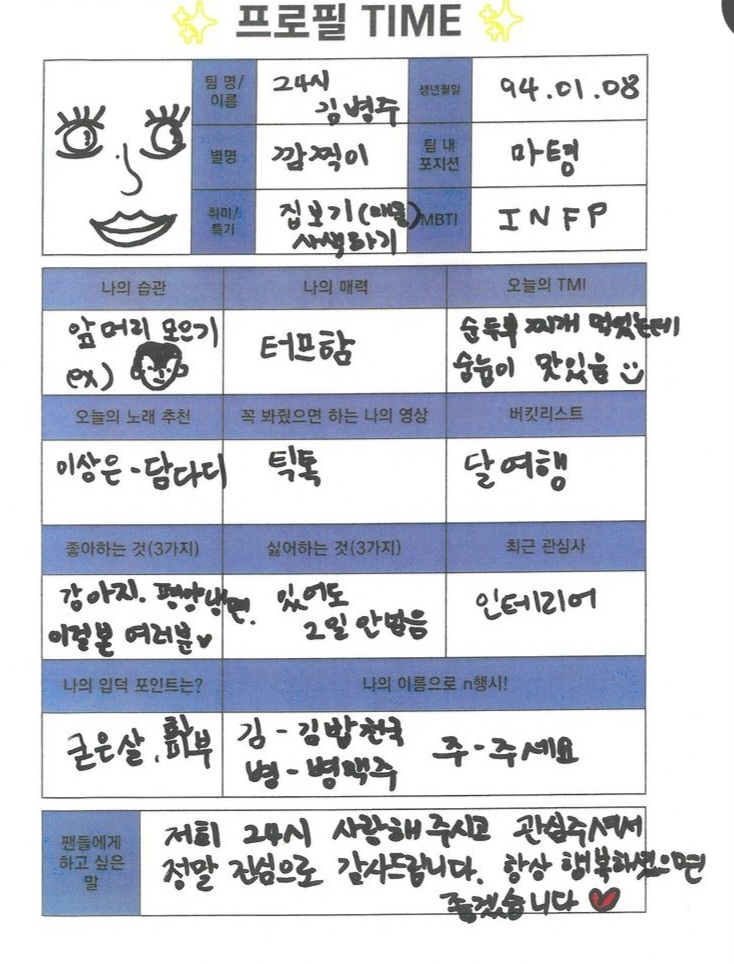 프로필 TIME
팀 명/
이름
24시
김병주
생년월일
94.01.08
별명
깜찍이
팀 내
포지션
마텽
취미/
특기
집보기(매물)
사색하기
MBTI
INFP
나의 습관
나의 매력
오늘의 TMI
앞머리 모으기
ex)
터프함
순두부 찌개 먹었는데
숭늉이 맛있음
오늘의 노래 추천
꼭 봐줬으면 하는 나의 영상
버킷리스트
이상은 - 담다디
틱톡
달여행
좋아하는 것(3가지)
싫어하는 것(3가지)
최근 관심사
강아지. 평양냉면.
이걸본 여러분♥
있어도
2일 안받음
인테리어
나의 입덕 포인트는?
나의 이름으로 n행시!
굳은살, 피부
김 - 김밥천국
병 - 병맥주
주 - 주세요
팬들에게
하고 싶은
말
저희 24시 사랑해주시고 관심주셔서
정말 진심으로 감사드립니다. 항상 행복하셨으면
좋겠습니다